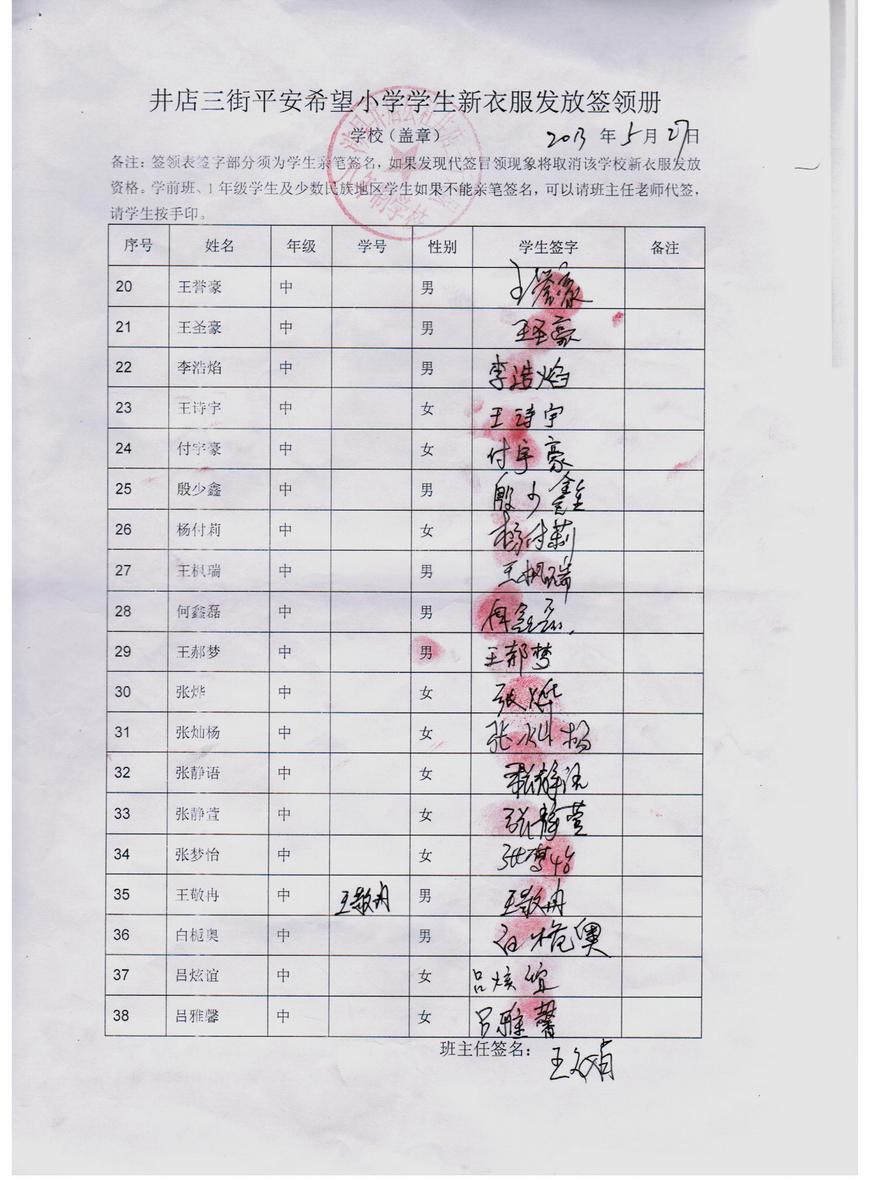 井店三街平安希望小学学生新衣服发放签领册
学校(盖章) 2013 年 5 月 27 日
备注:签领表签字部分须为学生亲笔签名,如果发现代签冒领现象将取消该学校新衣服发放
资格。学前班、1 年级学生及少数民族地区学生如果不能亲笔签名,可以请班主任老师代签,
请学生按手印。
序号 姓名 年级 学号 性别 学生签字 备注
20 王誉豪 中 男 王誉豪
21 王圣豪 中 男 王圣豪
22 李浩焰 中 男 李浩焰
23 王诗宇 中 女 王诗宇
24 付宇豪 中 女 付宇豪
25 殷少鑫 中 男 殷少鑫
26 杨付莉 中 女 杨付莉
27 王枫瑞 中 男 王枫瑞
28 何鑫磊 中 男 何鑫磊
29 王郝梦 中 男 王郝梦
30 张烨 中 女 张烨
31 张灿杨 中 女 张灿杨
32 张静语 中 女 张静语
33 张静萱 中 女 张静萱
34 张梦怡 中 女 张梦怡
35 王敬冉 中 王敬冉 男 王敬冉
36 白栀奥 中 男 白栀奥
37 吕炫谊 中 女 吕炫谊
38 吕雅馨 中 女 吕雅馨
班主任签名: 王